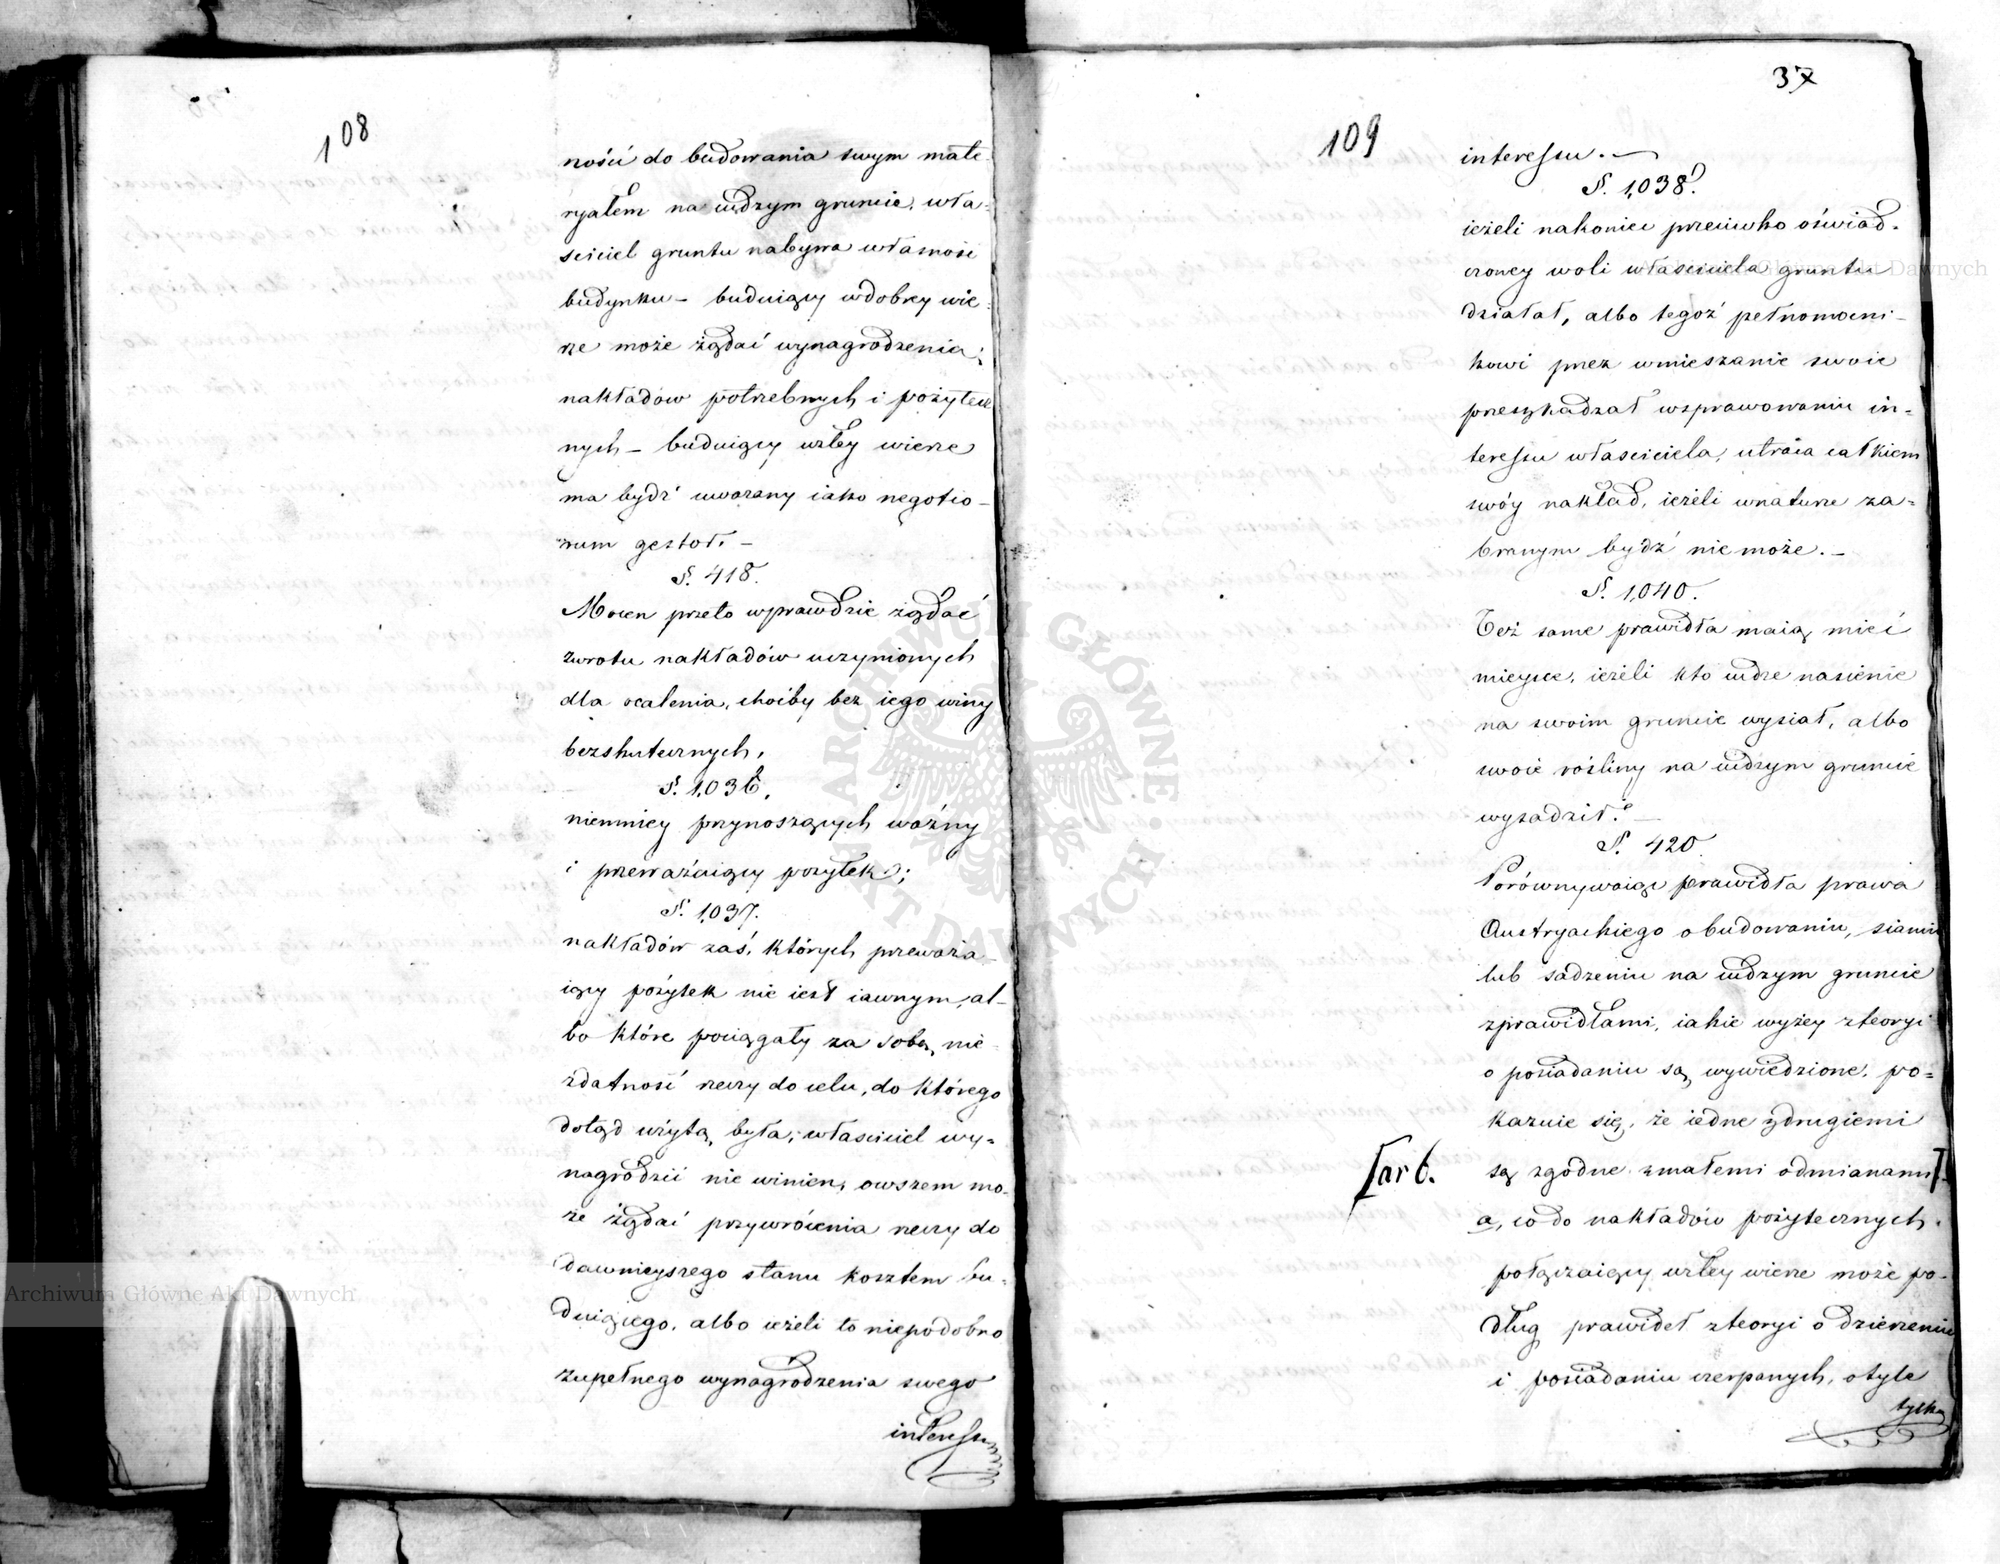 108
ności do budowania swym mate-
ryałem na cudzym gruncie, wła-
ściciel gruntu nabywa własność
budynku – buduiący wdobrey wie-
rze może żądać wynagrodzenia
nakładów potrzebnych i pożytecz
nych – buduiący wzłey wierze
ma bydź uważany iako negotio-
rum gestor. –
§. 418.
Mocen przeto wprawdzie żądać
zwrotu nakładów uczynionych
dla ocalenia, choćby bez iego winy
bezskutecznych,
§. 1,036,
niemniey przynoszących ważny
i przeważaiący pożytek;
§. 1,037.
nakładów zaś, których przeważa-
iący pożytek nie iest iawnym, al-
bo które pociągały za sobą nie-
zdatność rzeczy do celu, do którego
dotąd użytą była, właściciel wy-
nagrodzić nie winien, owszem mo-
że żądać przywrócenia rzeczy do
dawnieyszego stanu kosztem bu-
duiącego, albo ieżeli to niepodobno
zupełnego wynagrodzenia swego
interessu
37
109
interessu. –
§. 1,038.
ieżeli nakoniec przeciwko oświad-
czoney woli właściciela gruntu
działał, albo tegoż pełnomocni-
kowi przez wmieszanie swoie
przeszkadzał wsprawowaniu in-
teressu właściciela, utraca całkiem
swóy nakład, ieżeli wnaturze za-
branym bydź nie może. –
§. 1,040.
Też same prawidła maią mieć
mieysce, ieżeli kto cudze nasienie
na swoim gruncie wysiał, albo
swoie rośliny na cudzym gruncie
wysadził. –
§. 420.
Porównywaiąc prawidła prawa
Austryackiego o budowaniu, sianiu
lub sadzeniu na cudzym gruncie
zprawidłami, iakie wyżey zteoryi
o posiadaniu są wywiedzione, po-
kazuie się, że iedne zdrugiemi
[art.
są zgodne zmałemi odmianami]
a, co do nakładów pożytecznych.
połączaiący wzłey wierze może po-
dług prawideł zteoryi o dzierżeniu
i posiadaniu czerpanych, otyle
tylko
Archiwum Główne Akt Dawnych
Archiwum Główne Akt Dawnych
ARCHIWUM GŁÓWNE AKT DAWNYCH